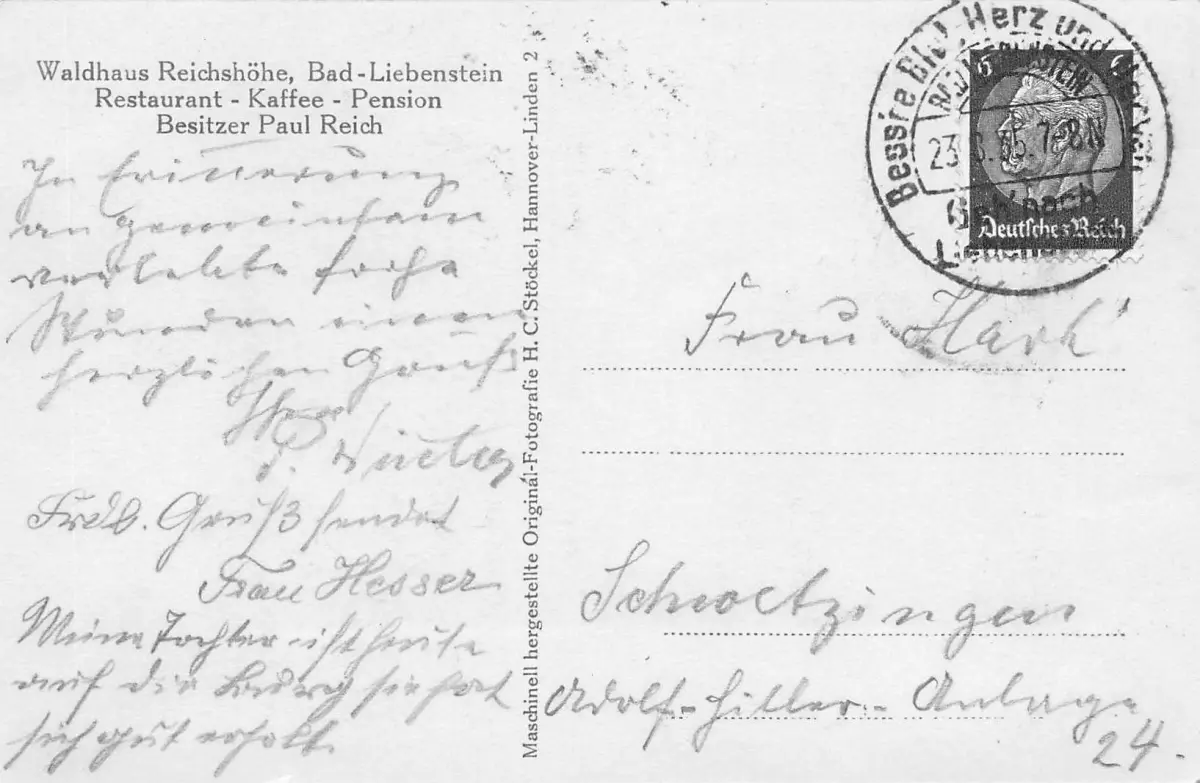 Waldhaus Reichshöhe, Bad-Liebenstein
Restaurant - Kaffee - Pension
Besitzer Paul Reich
In Erinnerung
an gemeinsam
verlebte frohe
Stunden einen
herzlichen Gruß
Frdl. Gruß sendet
Frau Hesser
Meine Tochter ist heute
auf die Bourg sie hat
sich gut erholt.
Maschinell hergestellte Original-Fotografie H. C. Stöckel, Hannover-Linden 2
Herz und
BAD LIEBENSTEIN
6 6
Deutsches Reich
Frau Hack
Schwetzingen
Adolf-Hitler-Anlage
24.